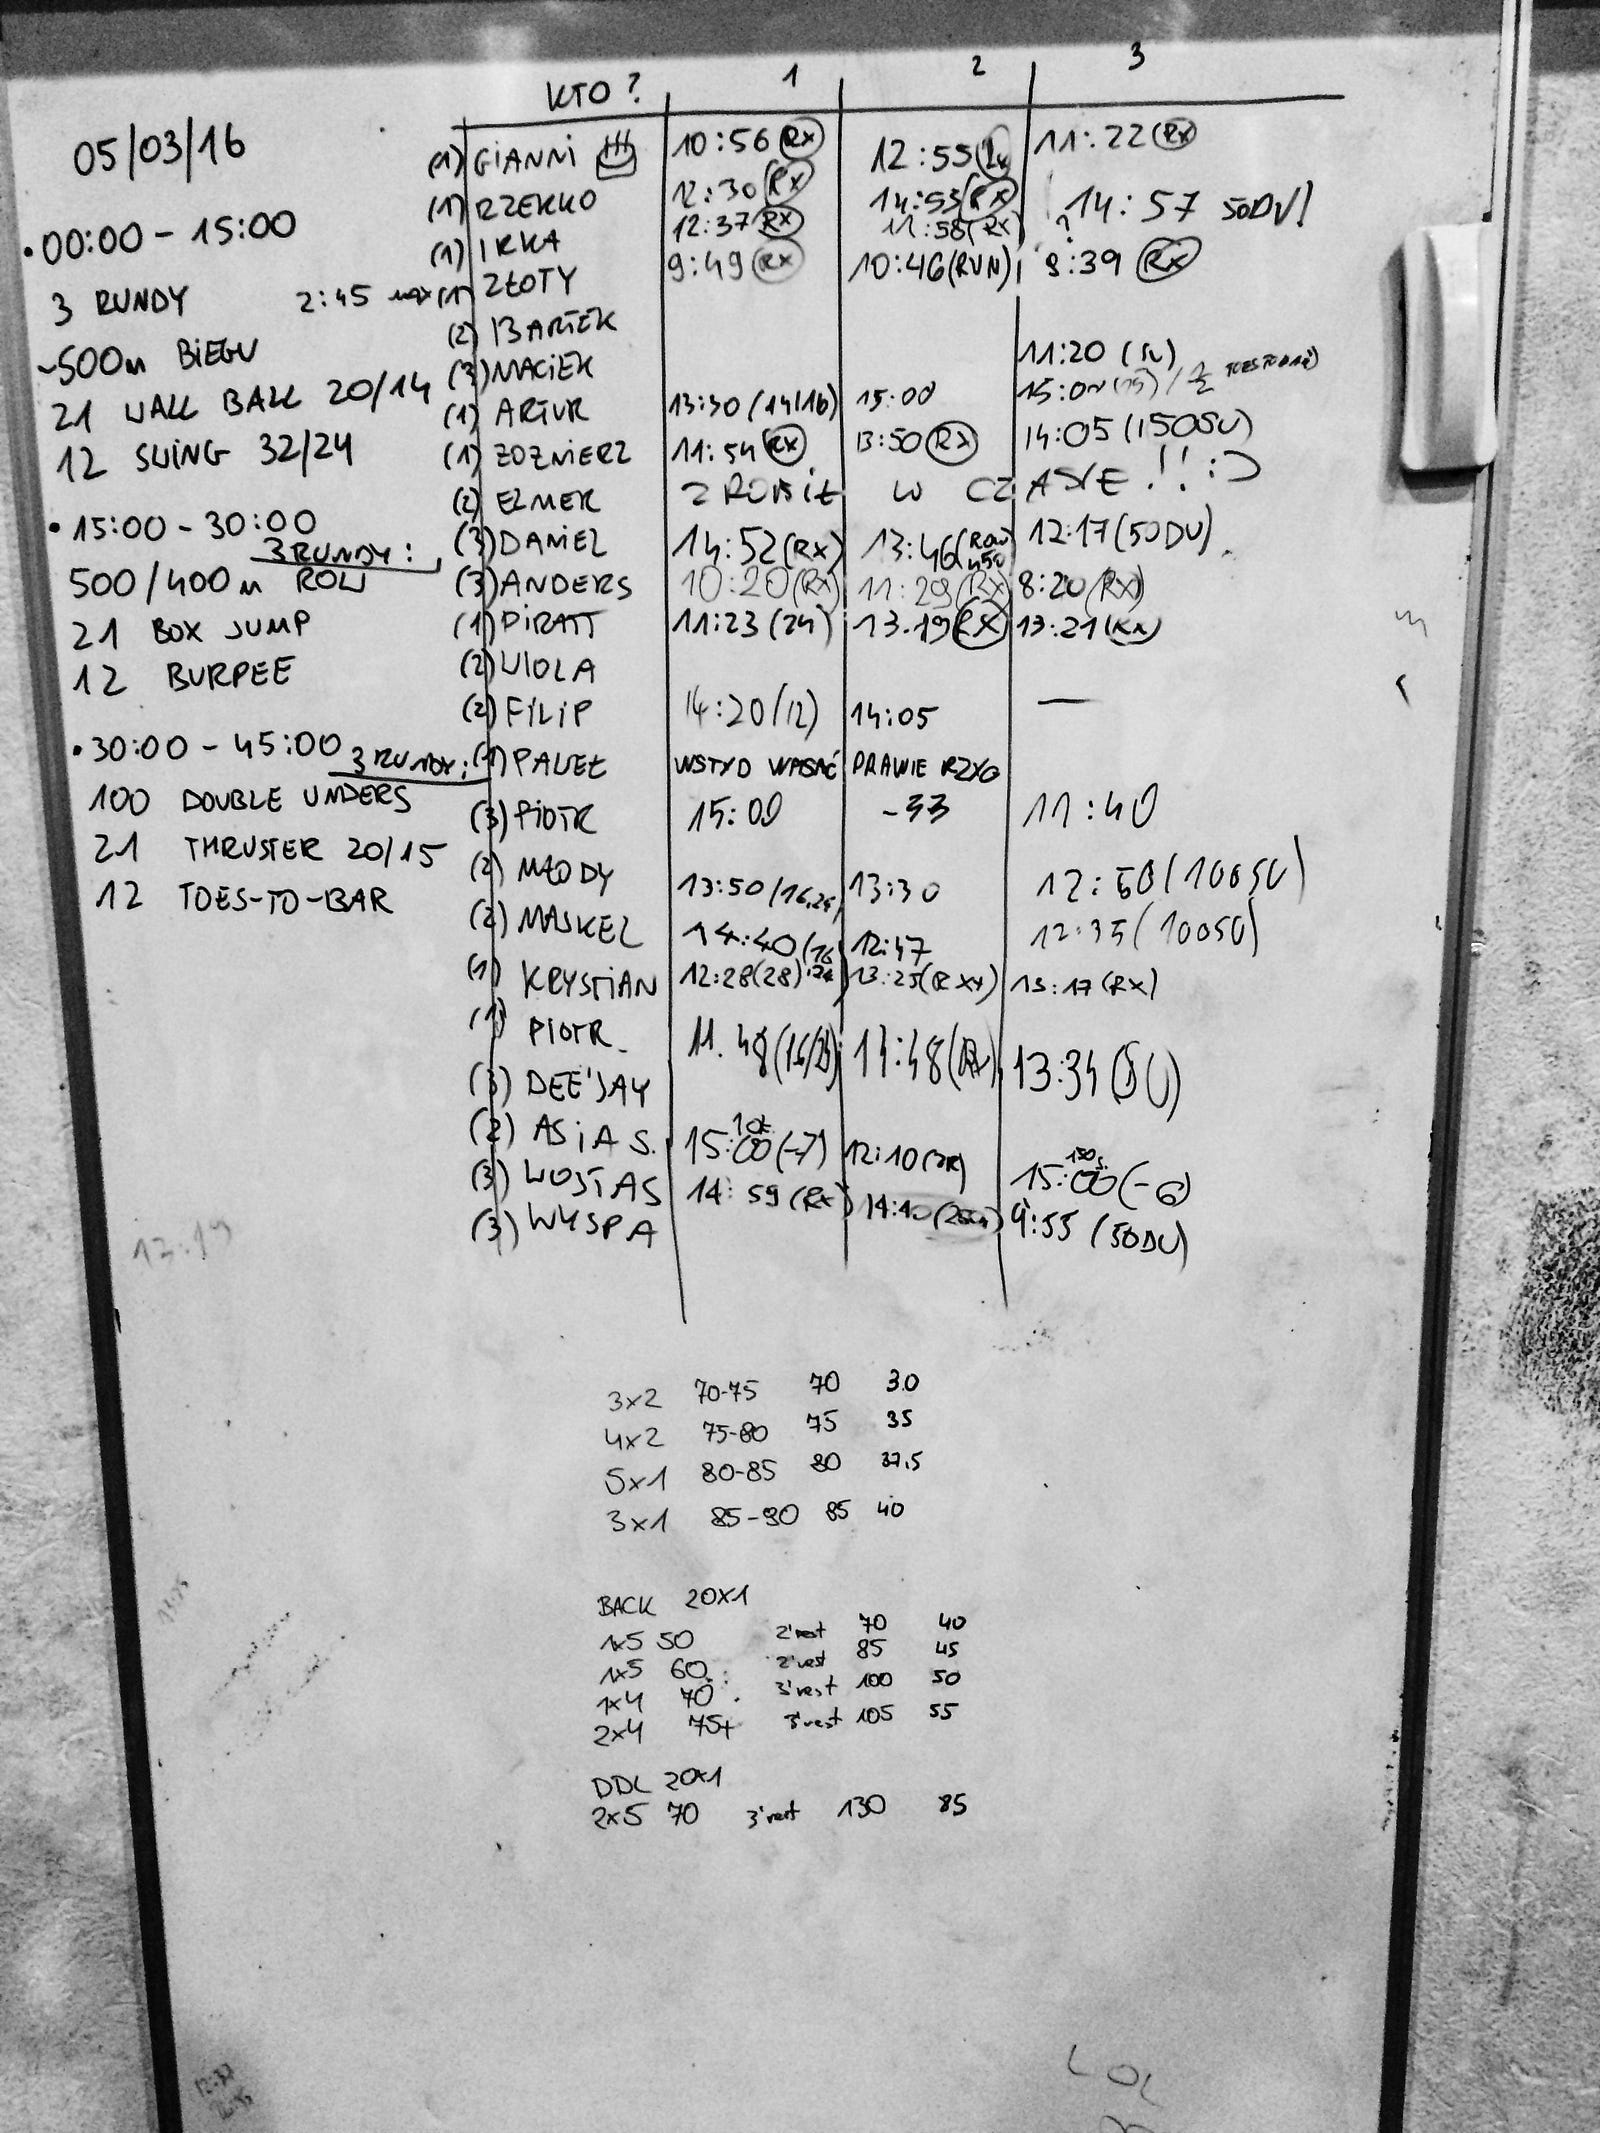 KTO? 1 2 3
05/03/16
(1) GIANNI 10:56 (RX) 12:55 11:22 (RX)
(1) RZEKKO 12:30 (RX) 14:53 (RX) 14:57 50DU!
• 00:00 - 15:00
(1) IRKA 12:37 (RX) 11:58 (RX) ?
3 RUNDY 2:45 max
(1) ZŁOTY 9:49 (RX) 10:46 (RUN) 9:39 (RX)
(2) BARTEK
~500m BIEGU
(3) MACIEK 11:20 (SU)
21 WALL BALL 20/14
(1) ARTUR 13:30 (14/16) 15:00
12 SWING 32/24
(1) ZOZNIERZ 11:54 (RX) 13:50 (RX) 14:05 (150SU)
(2) ELMER ZROBIŁ W CZASIE!! :)
• 15:00 - 30:00
3 RUNDY:
(3) DANIEL 14:52 (RX) 13:46 (ROW 450 12:17 (50DU)
500/400m ROW
(3) ANDERS 10:20 (RX) 11:29 (RX) 8:20 (RX)
21 BOX JUMP
(1) PIRATT 11:23 (24) 13.19 (RX) 13:21 (RX)
12 BURPEE
(2) VIOLA
(2) FILIP 14:20 (12) 14:05 —
• 30:00 - 45:00
3 RUNDY:
(1) PAWEŁ WSTYD WPISAĆ PRAWIE RZYG
100 DOUBLE UNDERS
(3) PIOTR 15:00 -33 11:40
21 THRUSTER 20/15
(2) MŁODY 13:50 /16,24) 13:30 12:50 (100SU)
12 TOES-TO-BAR
(2) MASKEL 14:40 (16 12:47 12:35 (100SU)
(1) KRYSTIAN 12:28 (28) 13:25 (RXY) 13:17 (RX)
(1) PIOTR 11.48 (16/24) 14:48 (RX) 13:34 (SU)
(3) DEE'JAY
(2) ASIA S. 15:00 (-7) 12:10 15:00 (-6)
(3) WOJTAS 14:59 (RX) 14:10 9:55 (50DU)
(3) WYSPA
12:19
3x2 70-75 70 30
4x2 75-80 75 35
5x1 80-85 80 37,5
3x1 85-90 85 40
BACK 20X1
1x5 50 2'rest 70 40
1x5 60 2'rest 85 45
1x4 70 3'rest 100 50
2x4 75+ 3'rest 105 55
DDL 20X1
2x5 70 3'rest 130 85
LOL